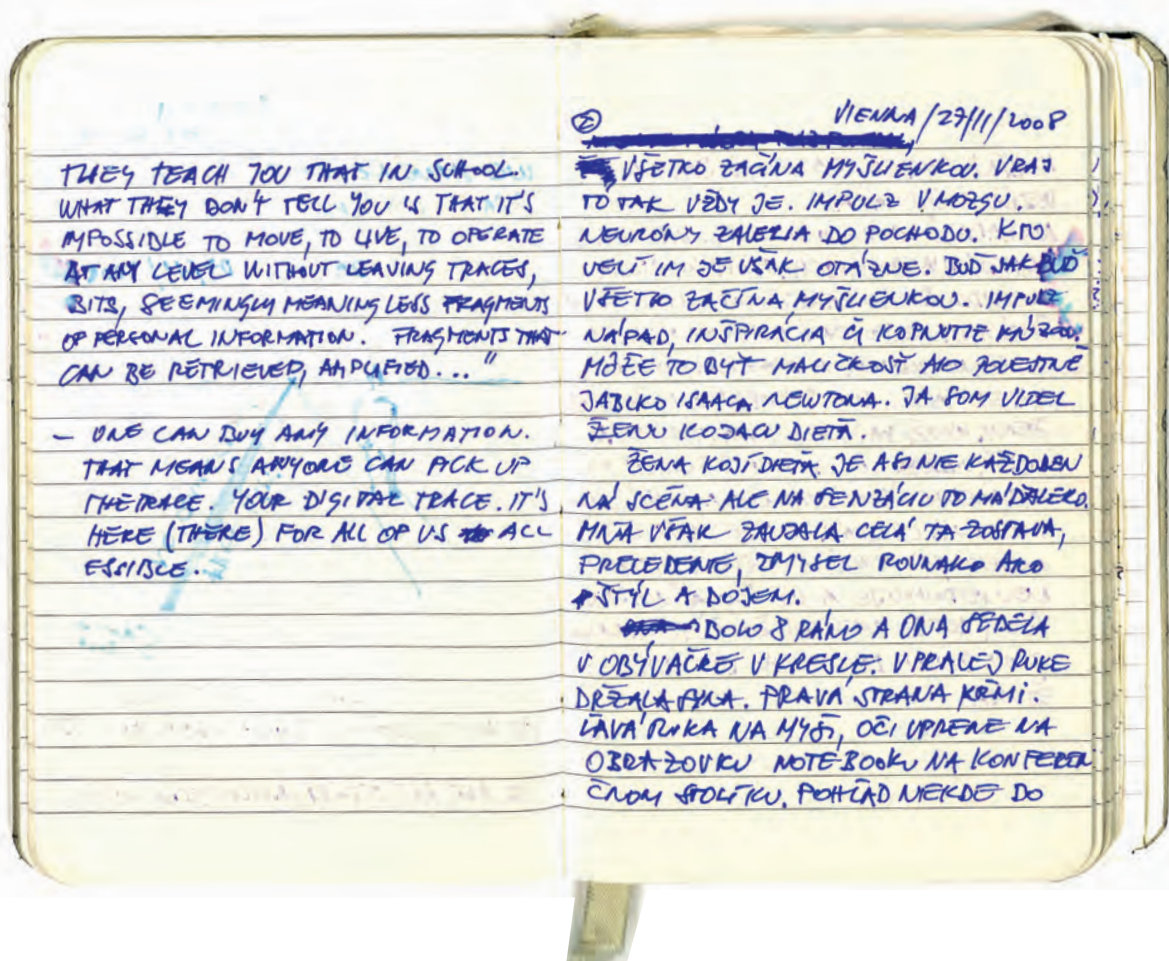 THEY TEACH YOU THAT IN SCHOOL.
WHAT THEY DON'T TELL YOU IS THAT IT'S
IMPOSSIBLE TO MOVE, TO LIVE, TO OPERATE
AT ANY LEVEL WITHOUT LEAVING TRACES,
BITS, SEEMINGLY MEANINGLESS FRAGMENTS
OF PERSONAL INFORMATION. FRAGMENTS THAT
CAN BE RETRIEVED, AMPLIFIED..."
– ONE CAN BUY ANY INFORMATION.
THAT MEANS ANYONE CAN PICK UP
THE TRACE. YOUR DIGITAL TRACE. IT'S
HERE (THERE) FOR ALL OF US ALL
ESSIBLE.
VIENNA/27/11/2008
VŠETKO ZAČÍNA MYŠLIENKOU. VRAJ
TO TAK VŽDY JE. IMPULZ V MOZGU.
NEURÓNY ZALEZIA DO POCHODU. KTO
VELÍ IM JE VŠAK OTÁZNE. BUĎ JAK BUĎ
VŠETKO ZAČÍNA MYŠLIENKOU. IMPULZ
NÁPAD, INŠPIRÁCIA ČI KOPNUTIE
MÔŽE TO BYŤ MALIČKOSŤ AKO POVESTNÉ
JABLKO ISAACA NEWTONA. JA SOM VIDEL
ŽENU KOJACU DIEŤA.
ŽENA KOJÍ DIEŤA JE ASI NIE KAŽDODEN
NÁ SCÉNA ALE NA SENZÁCIU TO MÁ ĎALEKO.
MŇA VŠAK ZAUJALA CELÁ TA ZOSTAVA,
PRECEDENIE, ZMYSEL ROVNAKO AKO
ŠTÝL A DOJEM.
BOLO 8 RÁNO A ONA SEDELA
V OBÝVAČKE V KRESLE. V PRAVEJ RUKE
DRŽALA SYNA. PRAVÁ STRANA KŔMI.
ĽAVÁ RUKA NA MYŠI, OČI UPRENE NA
OBRAZOVKU NOTEBOOKU NA KONFEREN
ČNOM STOLÍKU. POHĽAD NIEKDE DO